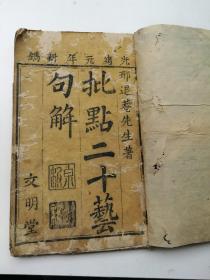 光緒元年新鐫
邢退菴先生著
批點二十藝
句解
文明堂